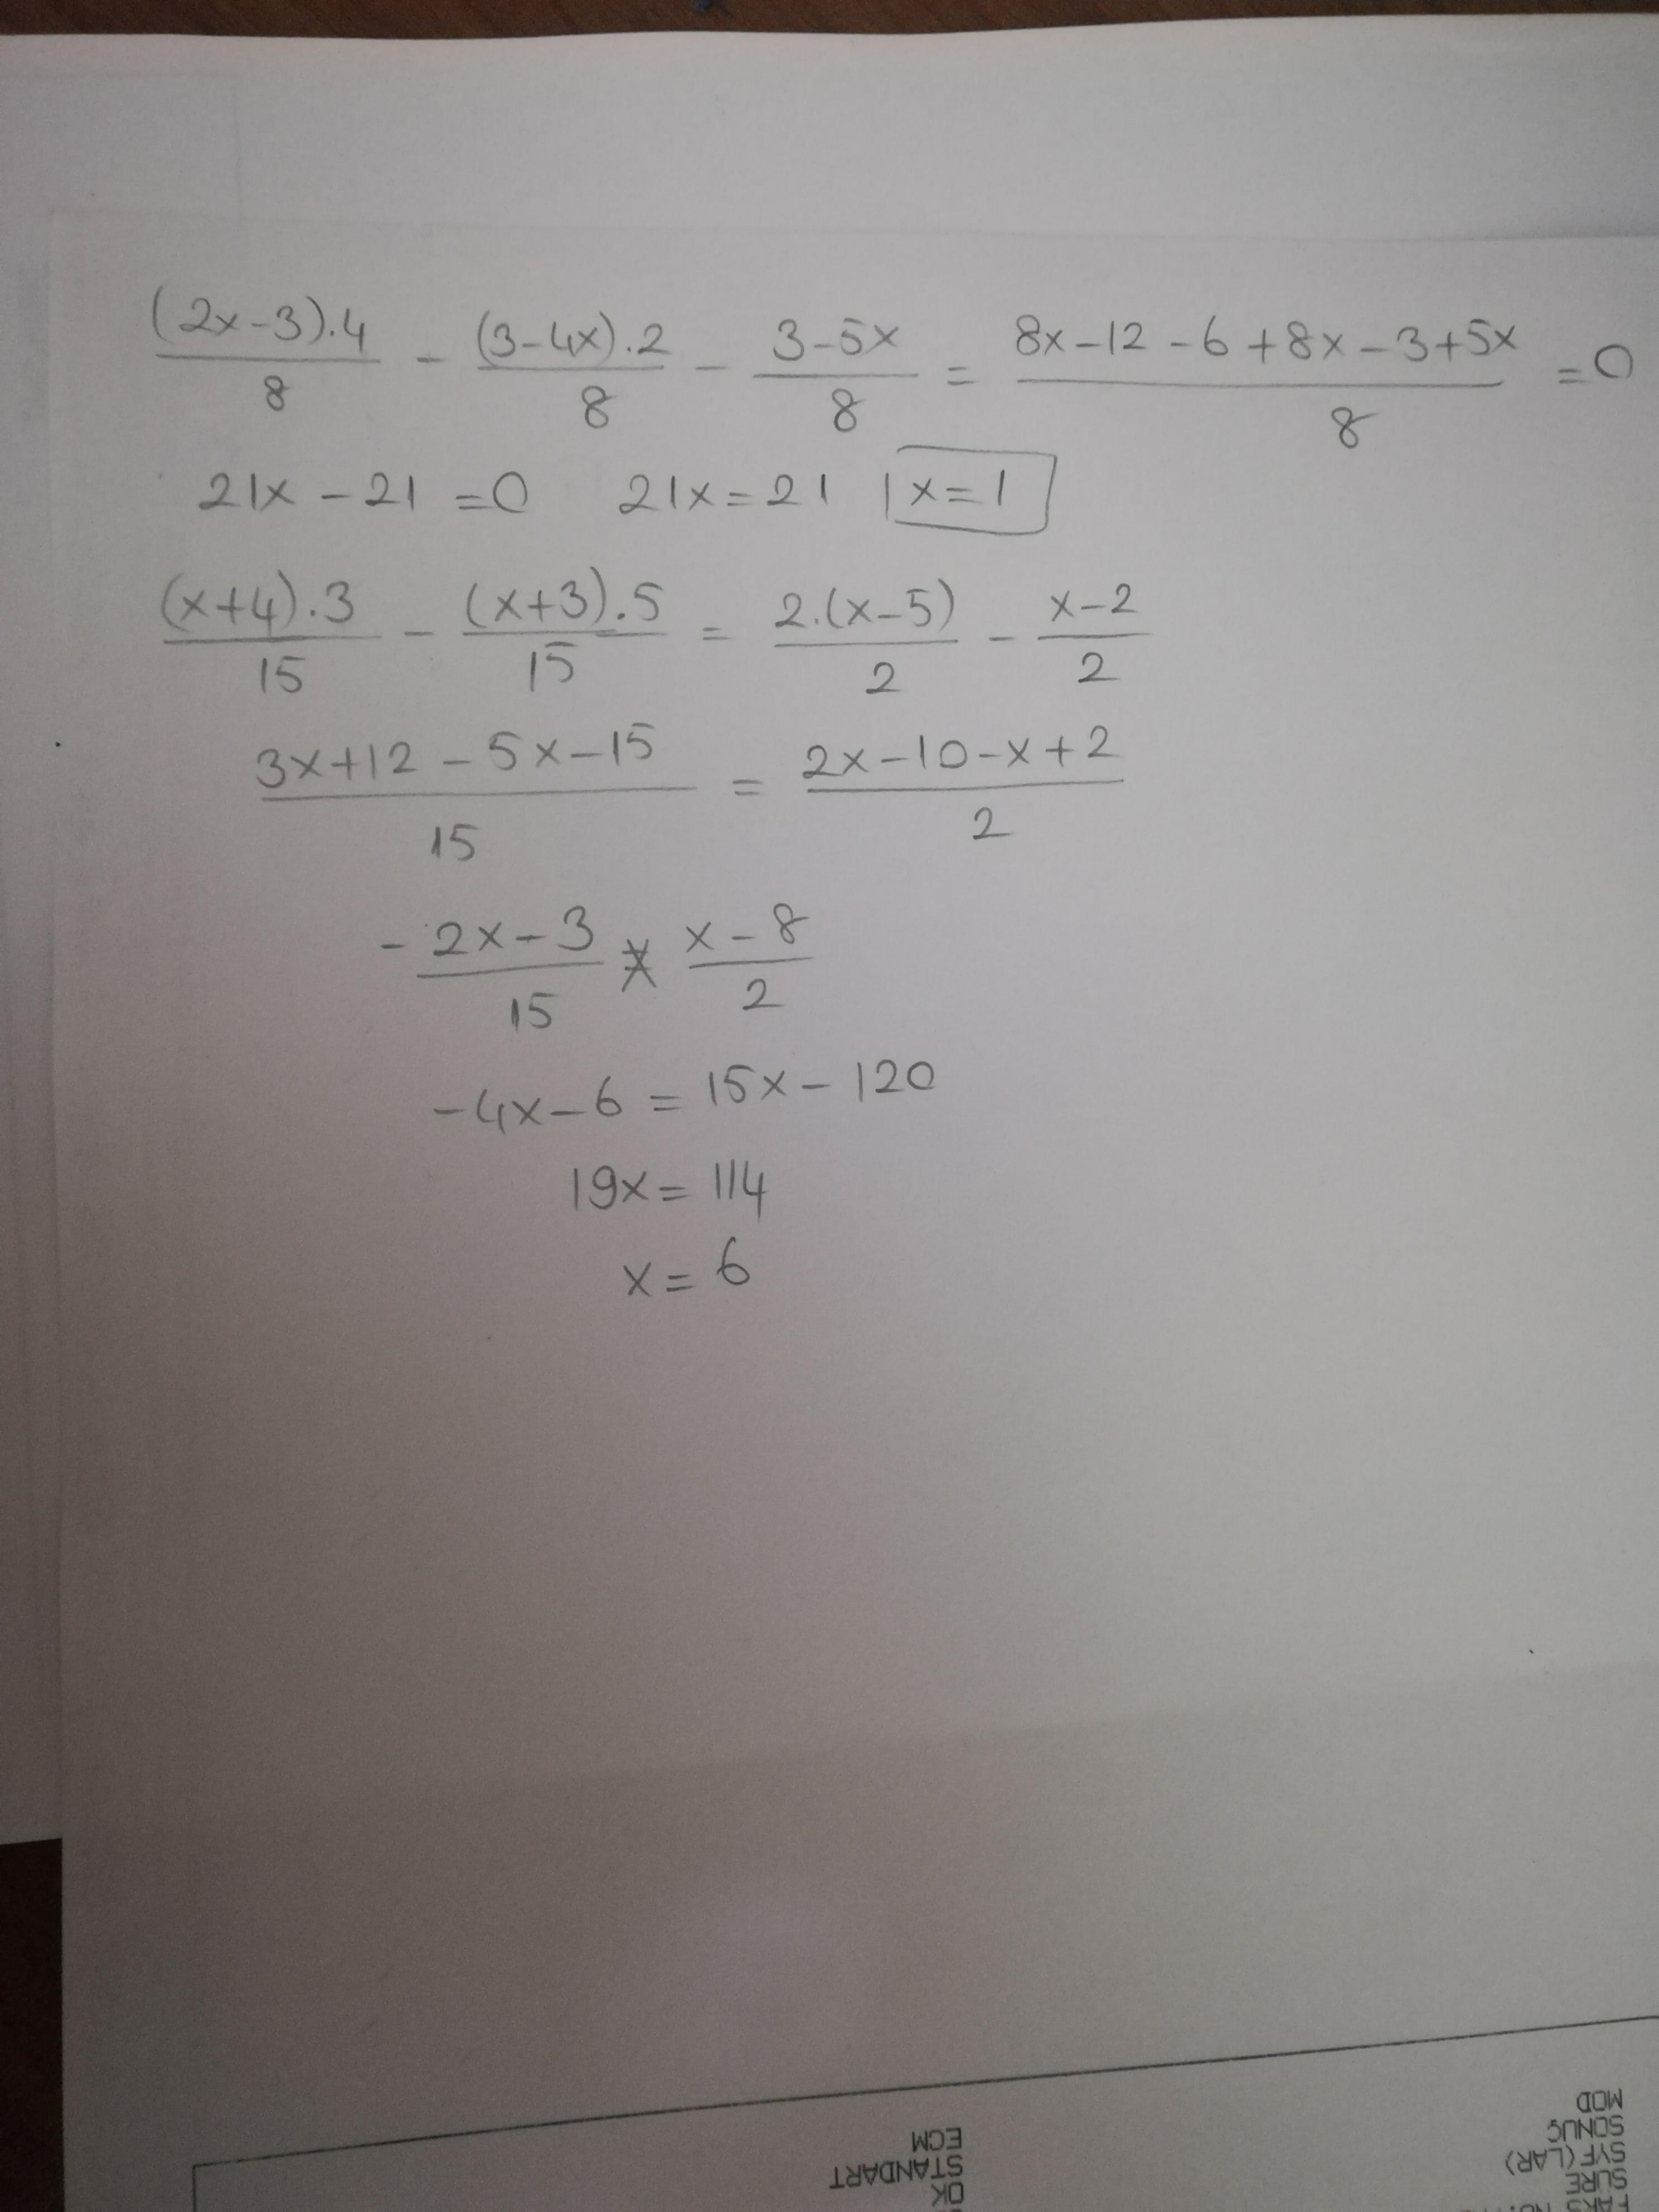 (2x-3).4/8 - (3-4x).2/8 - 3-5x/8 = 8x-12-6+8x-3+5x/8 = 0
21x-21=0 21x=21 | x=1
(x+4).3/15 - (x+3).5/15 = 2.(x-5)/2 - x-2/2
3x+12-5x-15/15 = 2x-10-x+2/2
-2x-3/15 = x-8/2
-4x-6=15x-120
19x=114
x=6
MOD
SONUÇ
SYF(LAR)
SURE
FAKS NO.
ECM
STANDART
OK